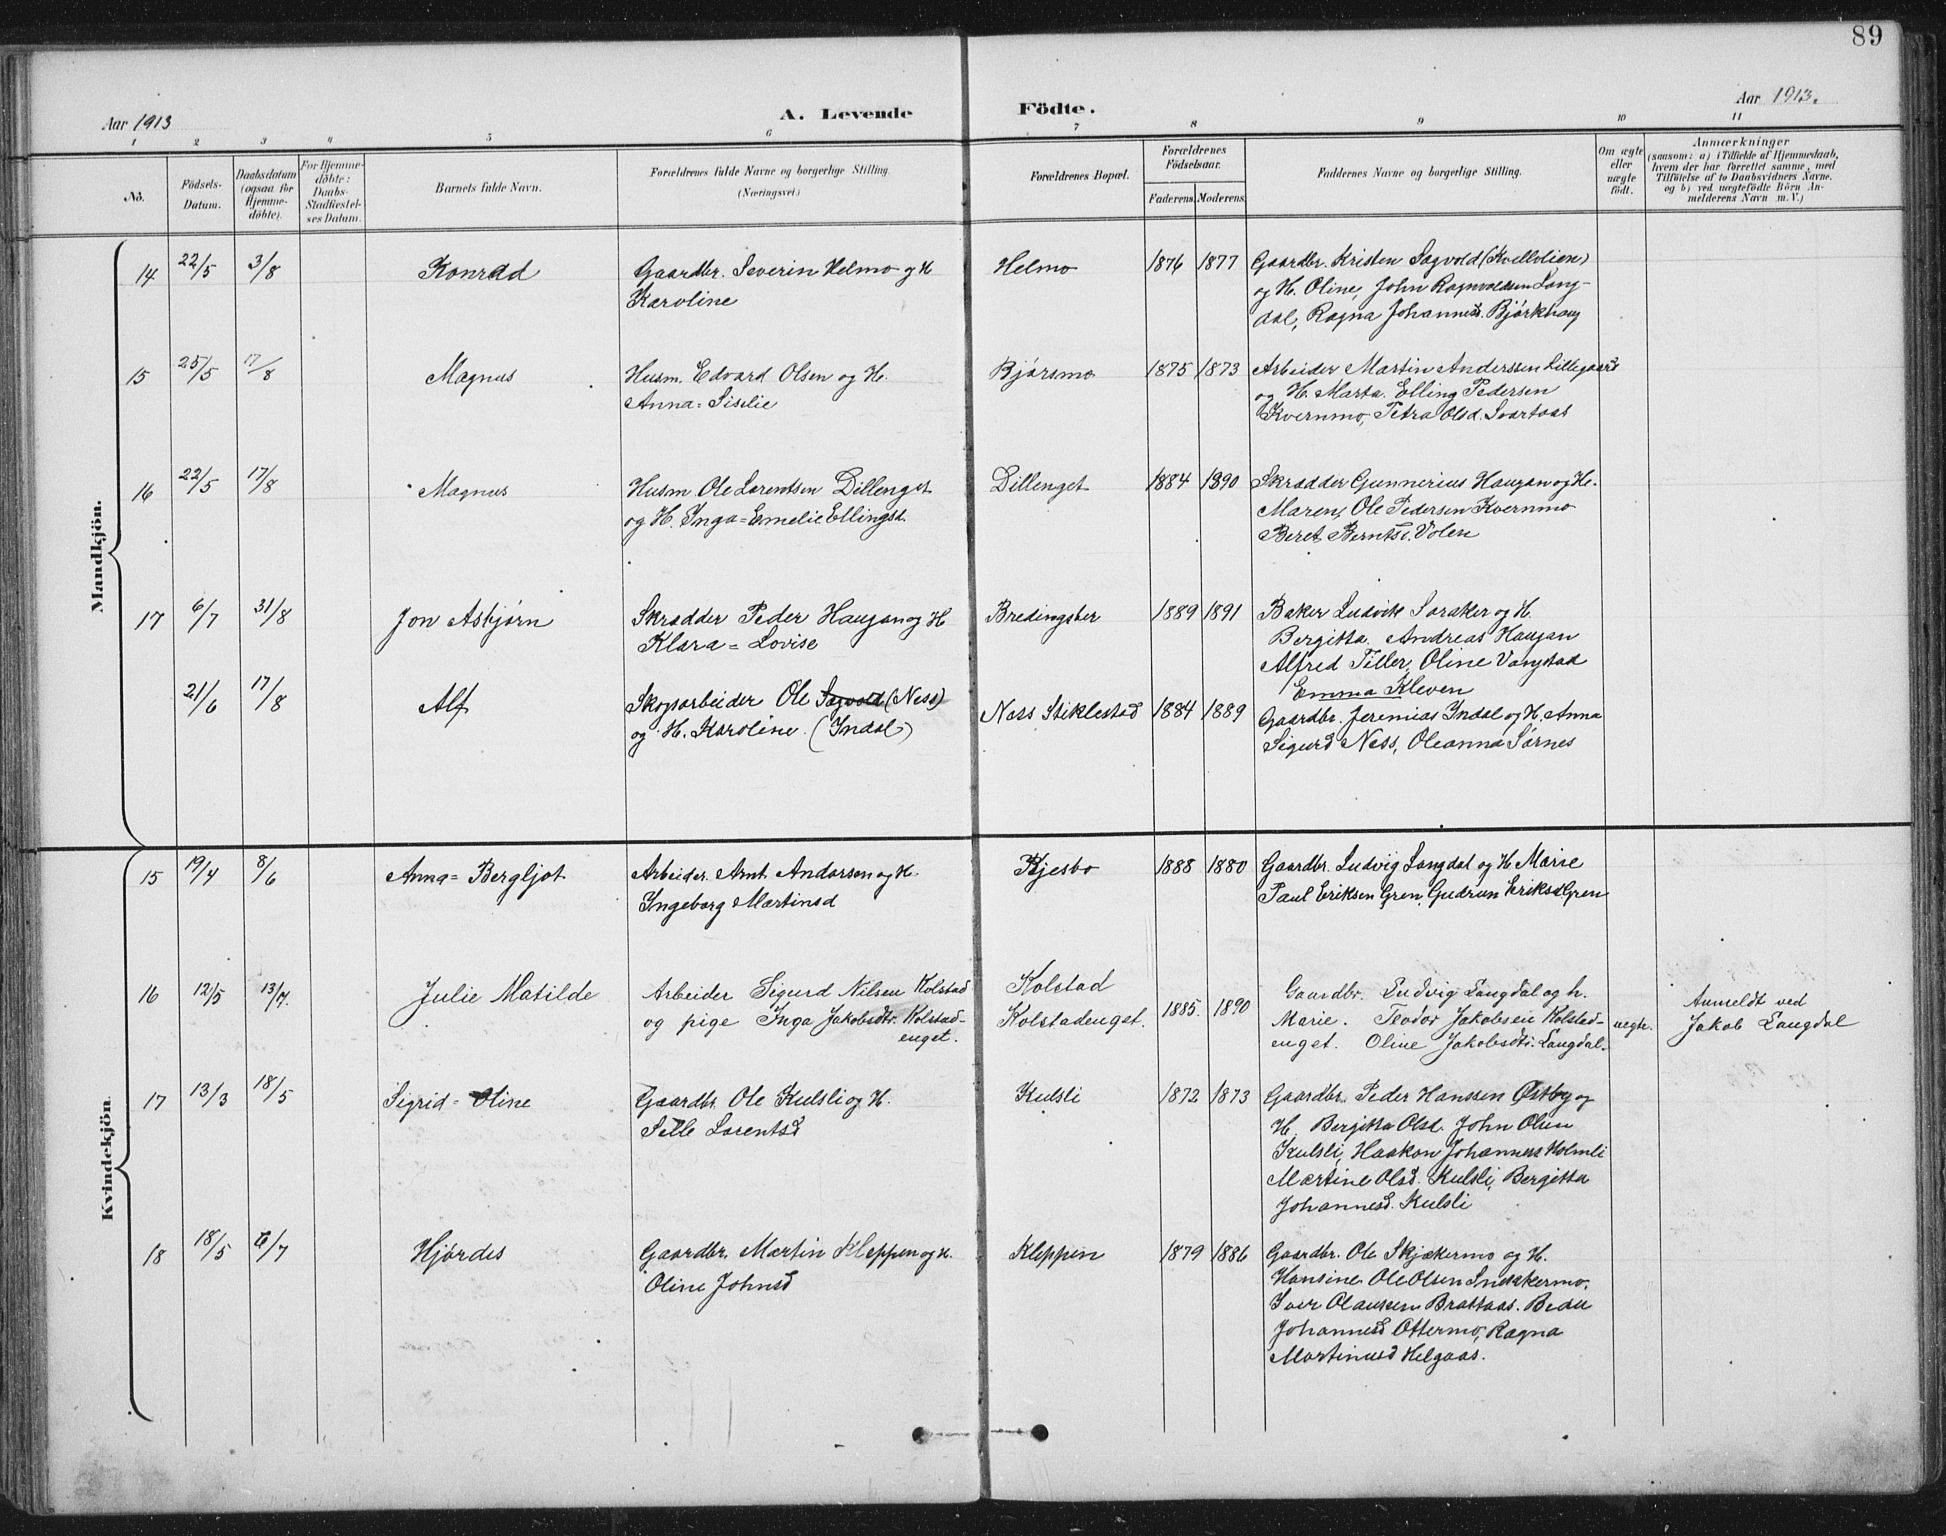 89
Aar 1913
A. Levende Födte.
Aar 1913.
1 2 3 4 5 6 7 8 9 10 11
No.
Födsels-Datum.
Daabsdatum (ogsaa for Hjemme-døbte).
For Hjemme-döbte: Daabs-Stadfæstel-ses Datum.
Barnets fulde Navn.
Forældrenes fulde Navne og borgerlige Stilling. (Næringsvei.)
Forældrenes Bopæl.
Forældrenes Födselsaar.
Faderens. Moderens.
Faddernes Navne og borgerlige Stilling.
Om ægte eller uægte födt.
Anmærkninger
(saasom: a) i Tilfælde af Hjemmedaab,
hvem der har forrettet samme, med
Tilføielse af to Daabsvidners Navne.
og b) ved uægtefödte Börn An-
melderens Navn m. V.)
Mandkjön.
14 22/5 3/8 Konrad
Gaardbr. Severin Helmo og H
Karoline
Helmo 1876 1877
Gaardbr. Kristen Sagvold (Kvelllien)
og H. Oline, John Ragnvaldsen Lang-
dal, Ragna Johannesd. Bjørkhaug
15 25/5 17/8 Magnus
Husm. Edvard Olsen og H.
Anna=Siselie
Bjørsmo 1875 1873
Arbeider Martin Anderssen Lillegaard
og H. Marta. Elling Pedersen
Kvernmo, Petra Olsd. Svartaas
16 22/5 17/8 Magnus
Husm. Ole Larentsen Dillenget
og H. Inga=Emelie Ellingsd.
Dillenget 1884 1890
Skrædder Gunnerius Haugan og H.
Maren, Ole Pedersen Kvernmo
Beret Berntsd. Volen
17 6/7 31/8 Jon Asbjørn
Skrædder Peder Haugan og H
Klara=Lovise
Bredingsber 1889 1891
Baker Ludvik Saraker og H.
Bergitta. Andreas Haugan
Alfred Tiller, Oline Vangstad
Emma Kleven
21/6 17/8 Alf
Skogsarbeider Ole Sagvold (Ness)
og H. Karoline. (Indal)
Ness Stiklestad 1884 1889
Gaardbr. Jeremias Indal og H. Anna
Sigurd Ness, Oleanna Sørnes
Kvindekjön.
15 19/4 8/6 Anna=Bergljot
Arbeider. Arnt Andorsen og H.
Ingeborg Martinsd
Kjesbo 1888 1880
Gaardbr. Ludvig Langdal og H Marie
Paul Eriksen Gren, Gudrun Eriksd Gren
16 12/5 13/7. Julie Matilde
Arbeider Sigurd Nilsen Kolstad
og pige Inga Jakobsdtr. Kolstad-
enget.
Kolstad
Kolstadenget. 1885. 1890
Gaardbr. Ludvig Langdal og h.
Marie. Teodor Jakobsen Kolstad-
enget. Oline Jakobsdtr. Langdal.
uegte.
Anmeldt ved
Jakob Langdal
17 13/3 18/5 Sigrid=Oline
Gaardbr. Ole Kulsli og H.
Sille Lorentsd
Kulsli 1872 1873
Gaardbr. Peder Hanssen Østby og
H. Bergitta Olsd. John Olsen
Kulsli, Haakon Johanness Holmli
Martine Olsd. Kulsli, Bergitta
Johannesd. Kulsli
18 18/5 6/7 Hjørdes
Gaardbr. Martin Kleppen og H.
Oline Johnsd
Kleppen 1879 1886
Gaardbr. Ole Skjækermo og H.
Hansine Ole Olsen
Iver Olaussen Brattaas.
Johannesd Ottermo, Ragna
Martinusd Helgaas.